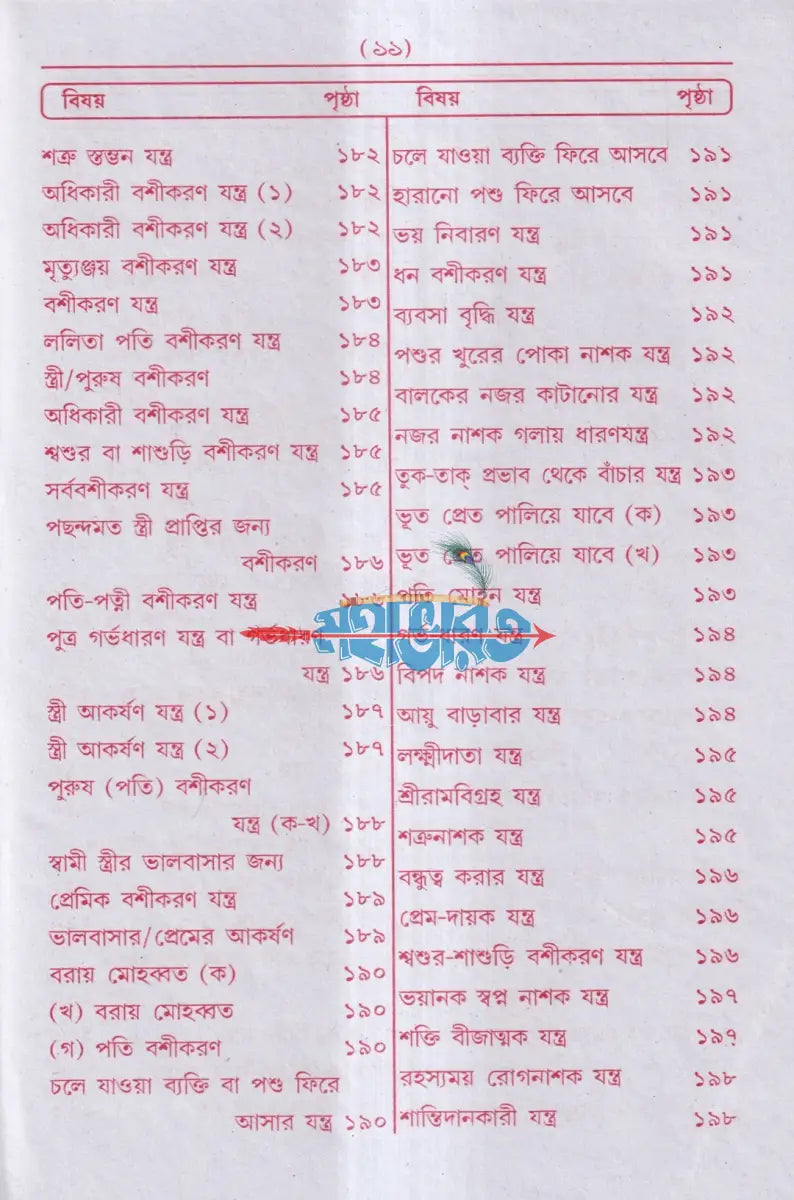 (১১)
বিষয় পৃষ্ঠা বিষয় পৃষ্ঠা
শত্রু স্তম্ভন যন্ত্র ১৮২
অধিকারী বশীকরণ যন্ত্র (১) ১৮২
অধিকারী বশীকরণ যন্ত্র (২) ১৮২
মৃত্যুঞ্জয় বশীকরণ যন্ত্র ১৮৩
বশীকরণ যন্ত্র ১৮৩
ললিতা পতি বশীকরণ যন্ত্র ১৮৪
স্ত্রী/পুরুষ বশীকরণ ১৮৪
অধিকারী বশীকরণ যন্ত্র ১৮৫
শ্বশুর বা শাশুড়ি বশীকরণ যন্ত্র ১৮৫
সর্ববশীকরণ যন্ত্র ১৮৫
পছন্দমত স্ত্রী প্রাপ্তির জন্য
বশীকরণ ১৮৬
পতি-পত্নী বশীকরণ যন্ত্র ১৮৬
পুত্র গর্ভধারণ যন্ত্র বা গর্ভধারণ
যন্ত্র ১৮৬
স্ত্রী আকর্ষণ যন্ত্র (১) ১৮৭
স্ত্রী আকর্ষণ যন্ত্র (২) ১৮৭
পুরুষ (পতি) বশীকরণ
যন্ত্র (ক-খ) ১৮৮
স্বামী স্ত্রীর ভালবাসার জন্য ১৮৮
প্রেমিক বশীকরণ যন্ত্র ১৮৯
ভালবাসার/প্রেমের আকর্ষণ ১৮৯
বরায় মোহব্বত (ক) ১৯০
(খ) বরায় মোহব্বত ১৯০
(গ) পতি বশীকরণ ১৯০
চলে যাওয়া ব্যক্তি বা পশু ফিরে
আসার যন্ত্র ১৯০
চলে যাওয়া ব্যক্তি ফিরে আসবে ১৯১
হারানো পশু ফিরে আসবে ১৯১
ভয় নিবারণ যন্ত্র ১৯১
ধন বশীকরণ যন্ত্র ১৯১
ব্যবসা বৃদ্ধি যন্ত্র ১৯২
পশুর খুরের পোকা নাশক যন্ত্র ১৯২
বালকের নজর কাটানোর যন্ত্র ১৯২
নজর নাশক গলায় ধারণযন্ত্র ১৯২
তুক-তাক্ প্রভাব থেকে বাঁচার যন্ত্র ১৯৩
ভূত প্রেত পালিয়ে যাবে (ক) ১৯৩
ভূত প্রেত পালিয়ে যাবে (খ) ১৯৩
পতি মোহন যন্ত্র ১৯৩
গর্ভ ধারণ যন্ত্র ১৯৪
বিপদ নাশক যন্ত্র ১৯৪
আয়ু বাড়াবার যন্ত্র ১৯৪
লক্ষ্মীদাতা যন্ত্র ১৯৫
শ্রীরামবিগ্রহ যন্ত্র ১৯৫
শত্রুনাশক যন্ত্র ১৯৫
বন্ধুত্ব করার যন্ত্র ১৯৬
প্রেম-দায়ক যন্ত্র ১৯৬
শ্বশুর-শাশুড়ি বশীকরণ যন্ত্র ১৯৬
ভয়ানক স্বপ্ন নাশক যন্ত্র ১৯৭
শক্তি বীজাত্মক যন্ত্র ১৯৭
রহস্যময় রোগনাশক যন্ত্র ১৯৮
শান্তিদানকারী যন্ত্র ১৯৮
মহাভারত